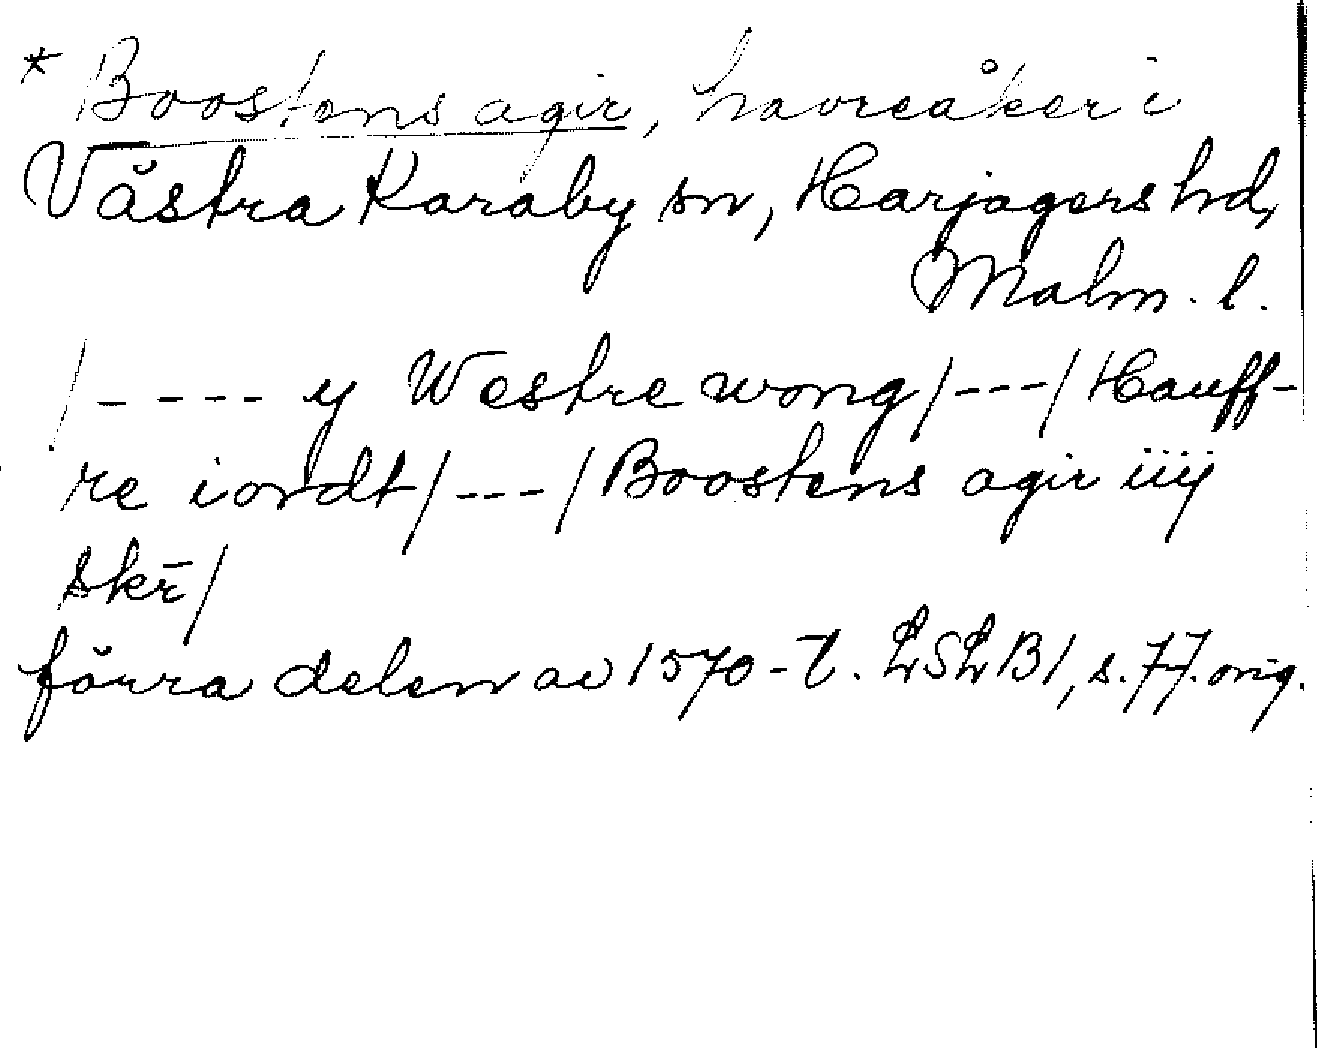 * Boostens agir, havreåker i
Västra Karaby sn, Harjagers hd,
Malm. l.
/ - - - - y Westre wong / - - - / Hauff-
re iordt / - - - / Boostens agir iiij
skr̄ /
förra delen av 1570-t. LSLB1, s. 77. orig.